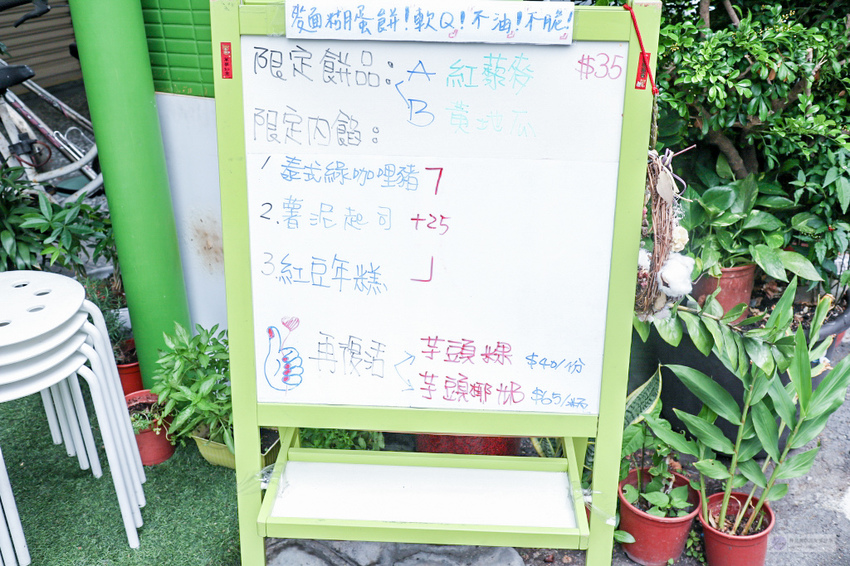 麵糊蛋餅!軟Q!不油!不脆!
限定餅品: A 紅藜麥 $35
B 黃地瓜
限定內餡:
1 泰式綠咖哩豬
2. 薯泥起司 +25
3. 紅豆年糕
再復活 芋頭粿 $40/份
芋頭椰奶 $65/杯